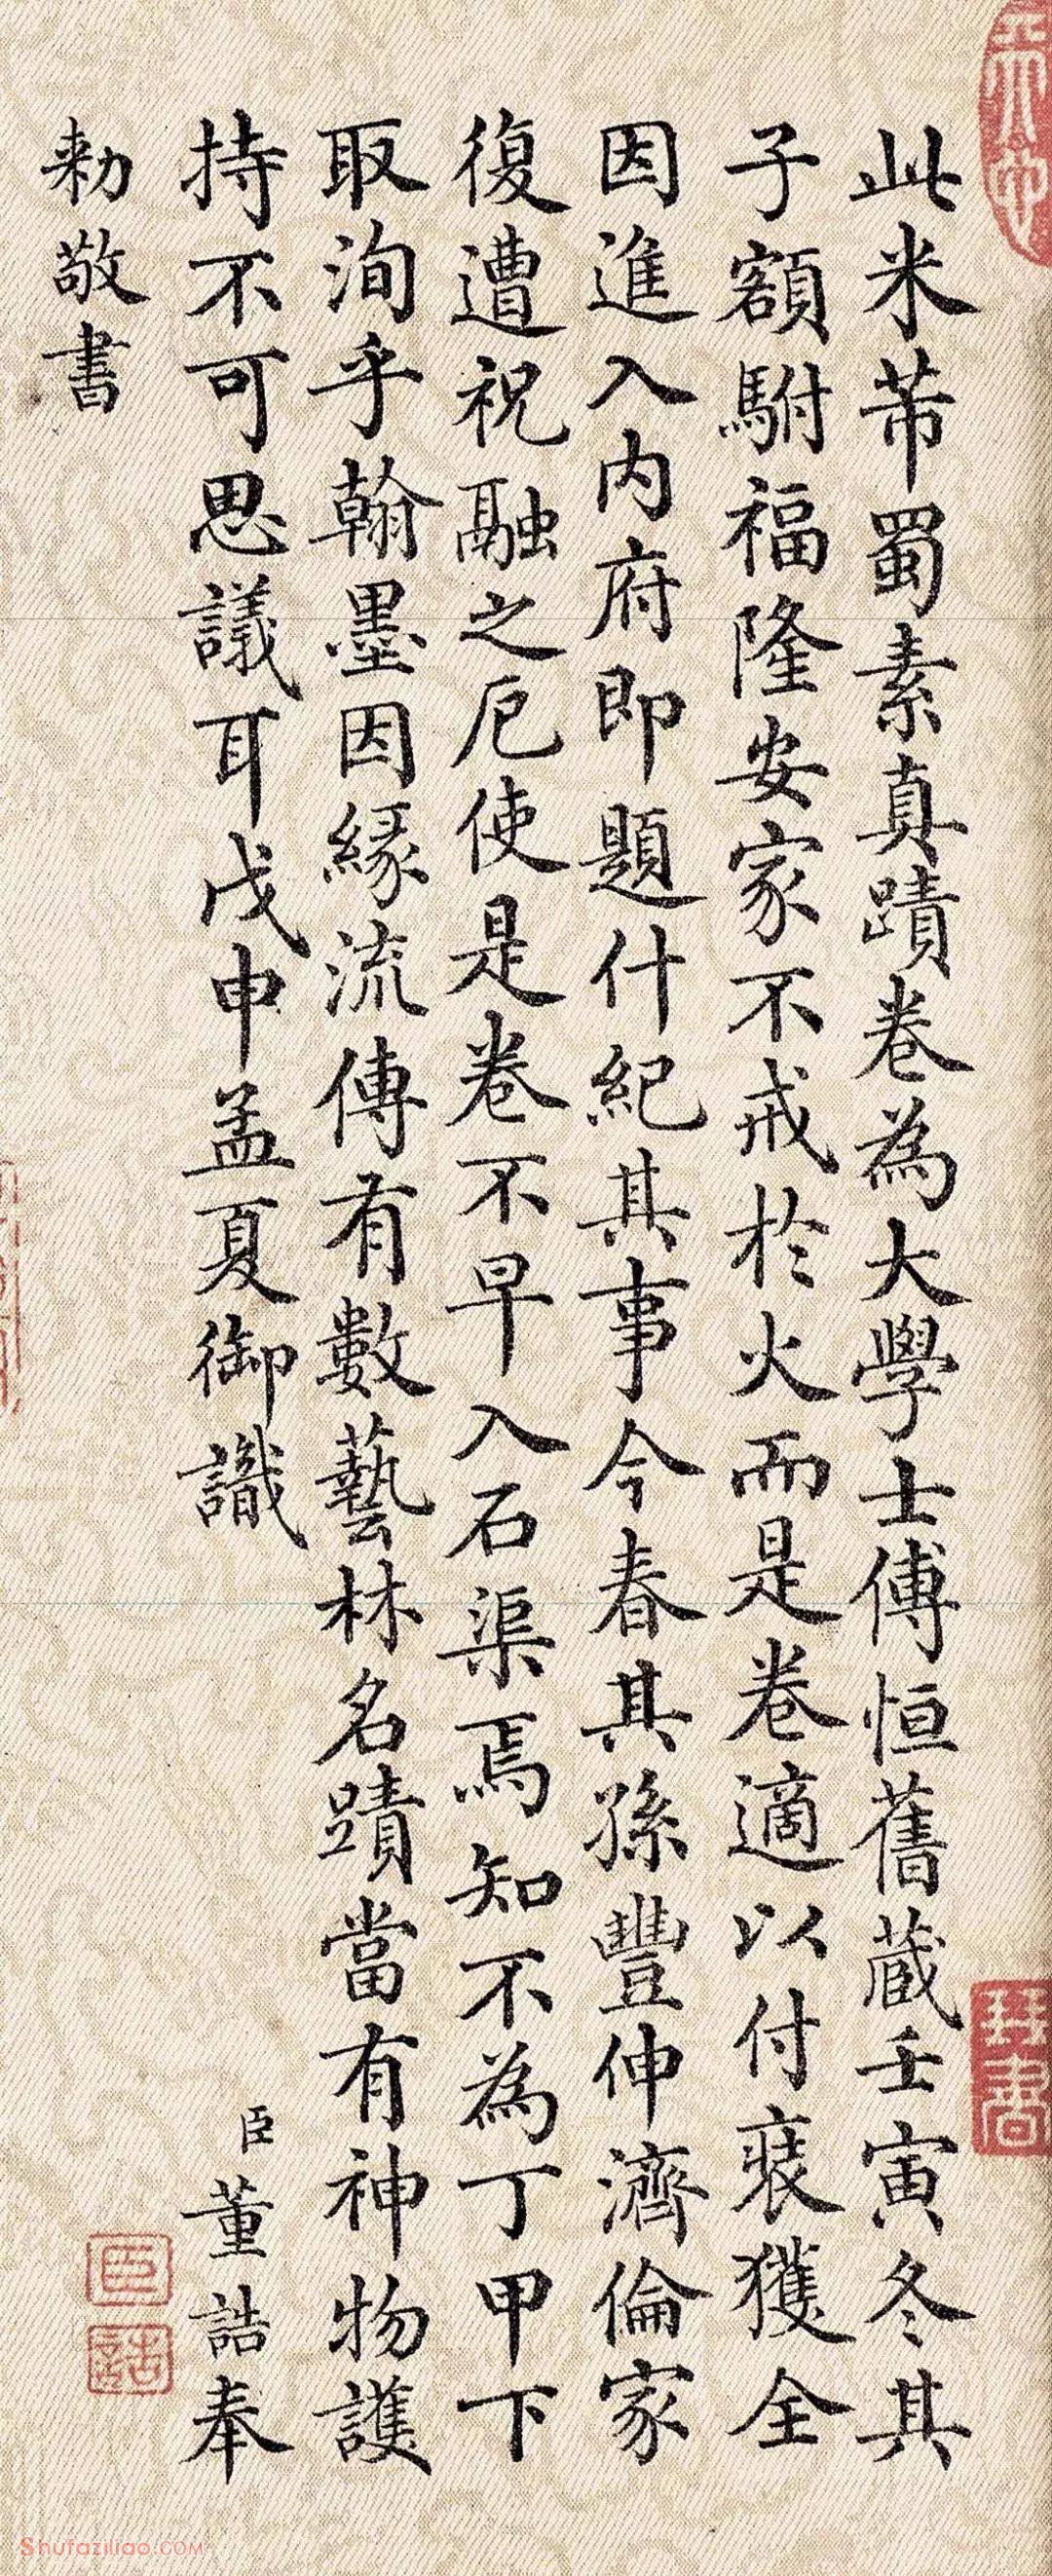 此米芾蜀素真蹟卷為大學士傅恒舊蔵壬寅冬其
子額駙福隆安家不戒於火而是卷適以付裝獲全
因進入内府即題什紀其事今春其孫豐伸濟倫家
復遭祝融之厄使是卷不早入石渠焉知不為丁甲下
取洵乎翰墨因緣流傳有數藝林名蹟當有神物護
持不可思議耳戊申孟夏御識
臣董誥奉
勅敬書
臣
誥
琴書
Shufaziliao.COM